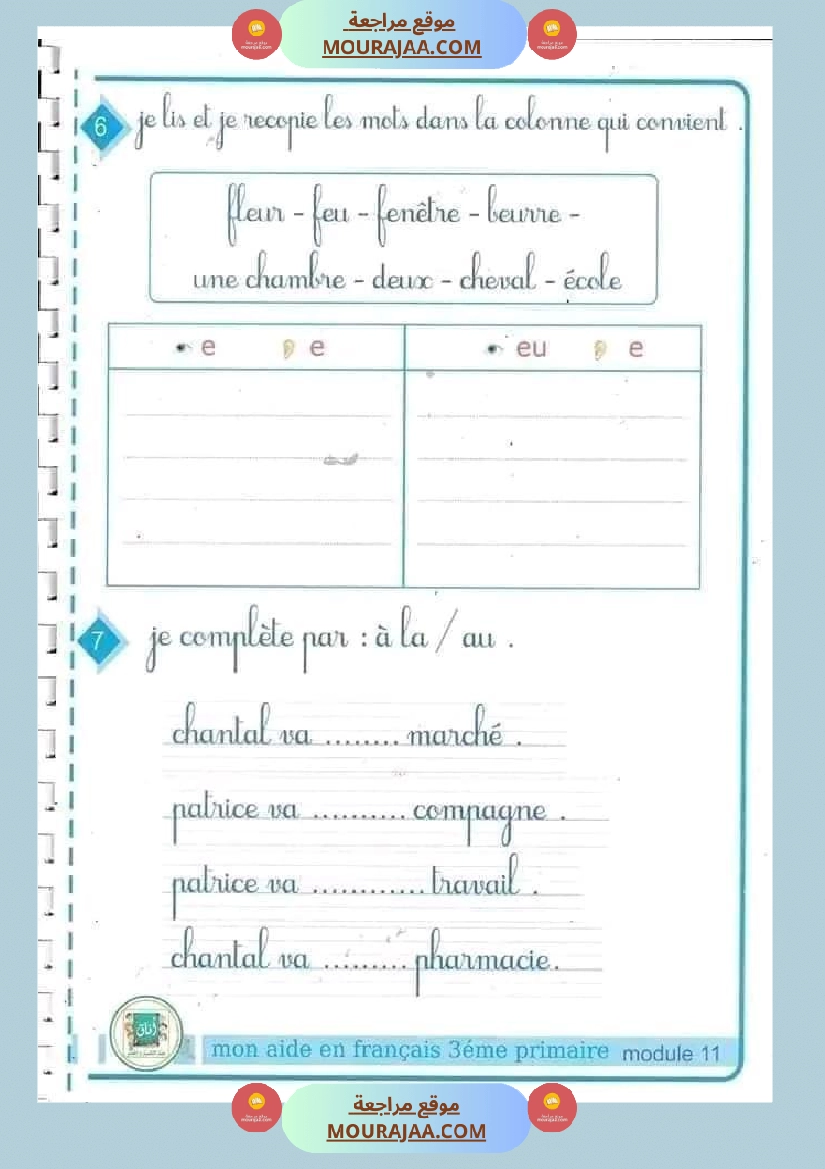 موقع مراجعة
MOURAJAA.COM
6 je lis et je recopie les mots dans la colonne qui convient .
fleur - feu - fenêtre - beurre -
une chambre - deux - cheval - école
e e eu e
7 je complète par : à la / au .
chantal va ........ marché .
patrice va .......... compagne .
patrice va ............ travail .
chantal va ......... pharmacie.
mon aide en français 3éme primaire module 11
موقع مراجعة
MOURAJAA.COM